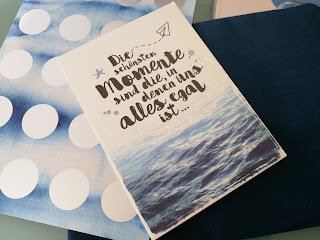 Die
schönsten
Momente
sind die, in
denen uns
alles egal
ist...